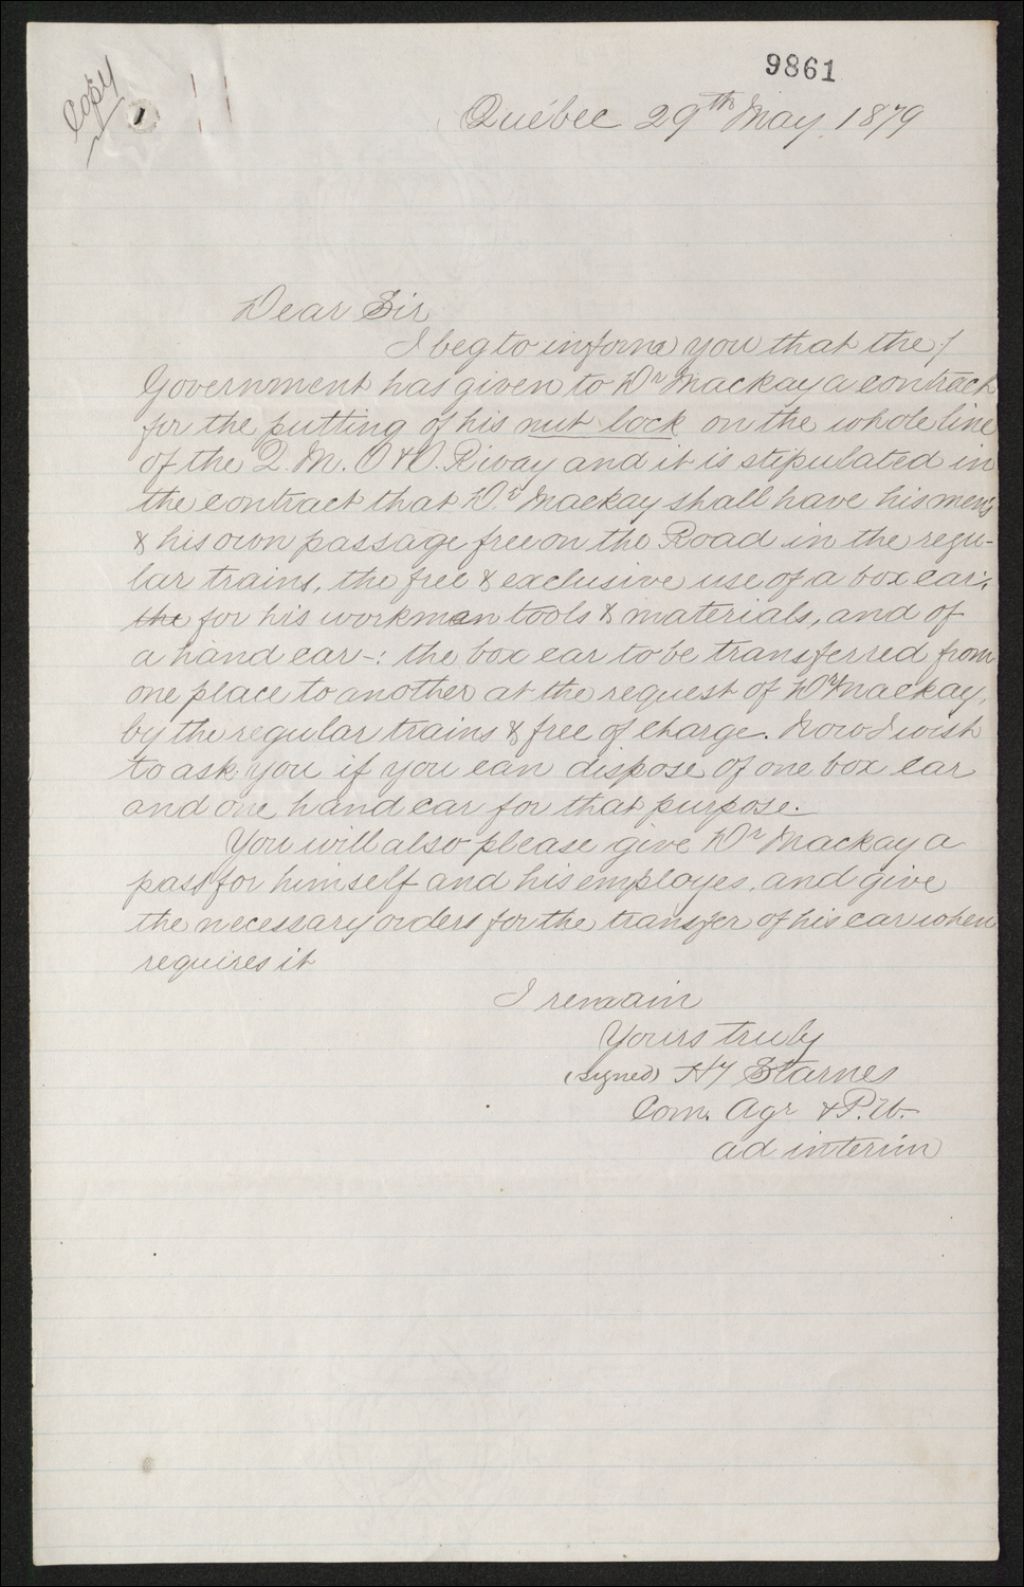 9861
Copy
1
Québec 29th May 1879
Dear Sir
I beg to inform you that the
Government has given to Dr Mackay a contract
for the putting of his nut lock on the whole line
of the Q. M. O & O. Rway and it is stipulated in
the contract that Dr Mackay shall have his men's
& his own passage free on the Road in the regu-
lar trains, the free & exclusive use of a box car,
the for his workman tools & materials, and of
a hand car -: the box car to be transferred from
one place to another at the request of Dr Mackay,
by the regular trains & free of charge. Now I wish
to ask you if you can dispose of one box car
and one hand car for that purpose.
You will also please give Dr Mackay a
pass for himself and his employes, and give
the necessary orders for the transfer of his car when
requires it
I remain
Yours truly
(signed) Hy Starnes
Com. Agr & P.W.
ad interim